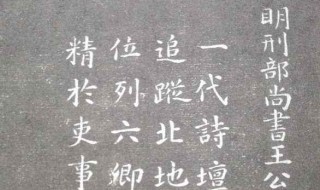 明刑部尚書王公
一代詩壇
追蹤北地
位列六卿
精於吏事